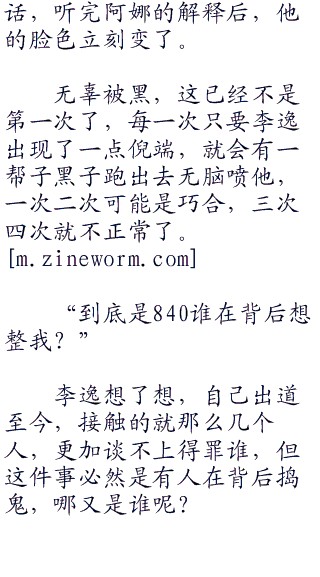 话，听完阿娜的解释后，他
的脸色立刻变了。
无辜被黑，这已经不是
第一次了，每一次只要李逸
出现了一点倪端，就会有一
帮子黑子跑出去无脑喷他，
一次二次可能是巧合，三次
四次就不正常了。
[m.zineworm.com]
“到底是840谁在背后想
整我？”
李逸想了想，自己出道
至今，接触的就那么几个
人，更加谈不上得罪谁，但
这件事必然是有人在背后捣
鬼，哪又是谁呢？